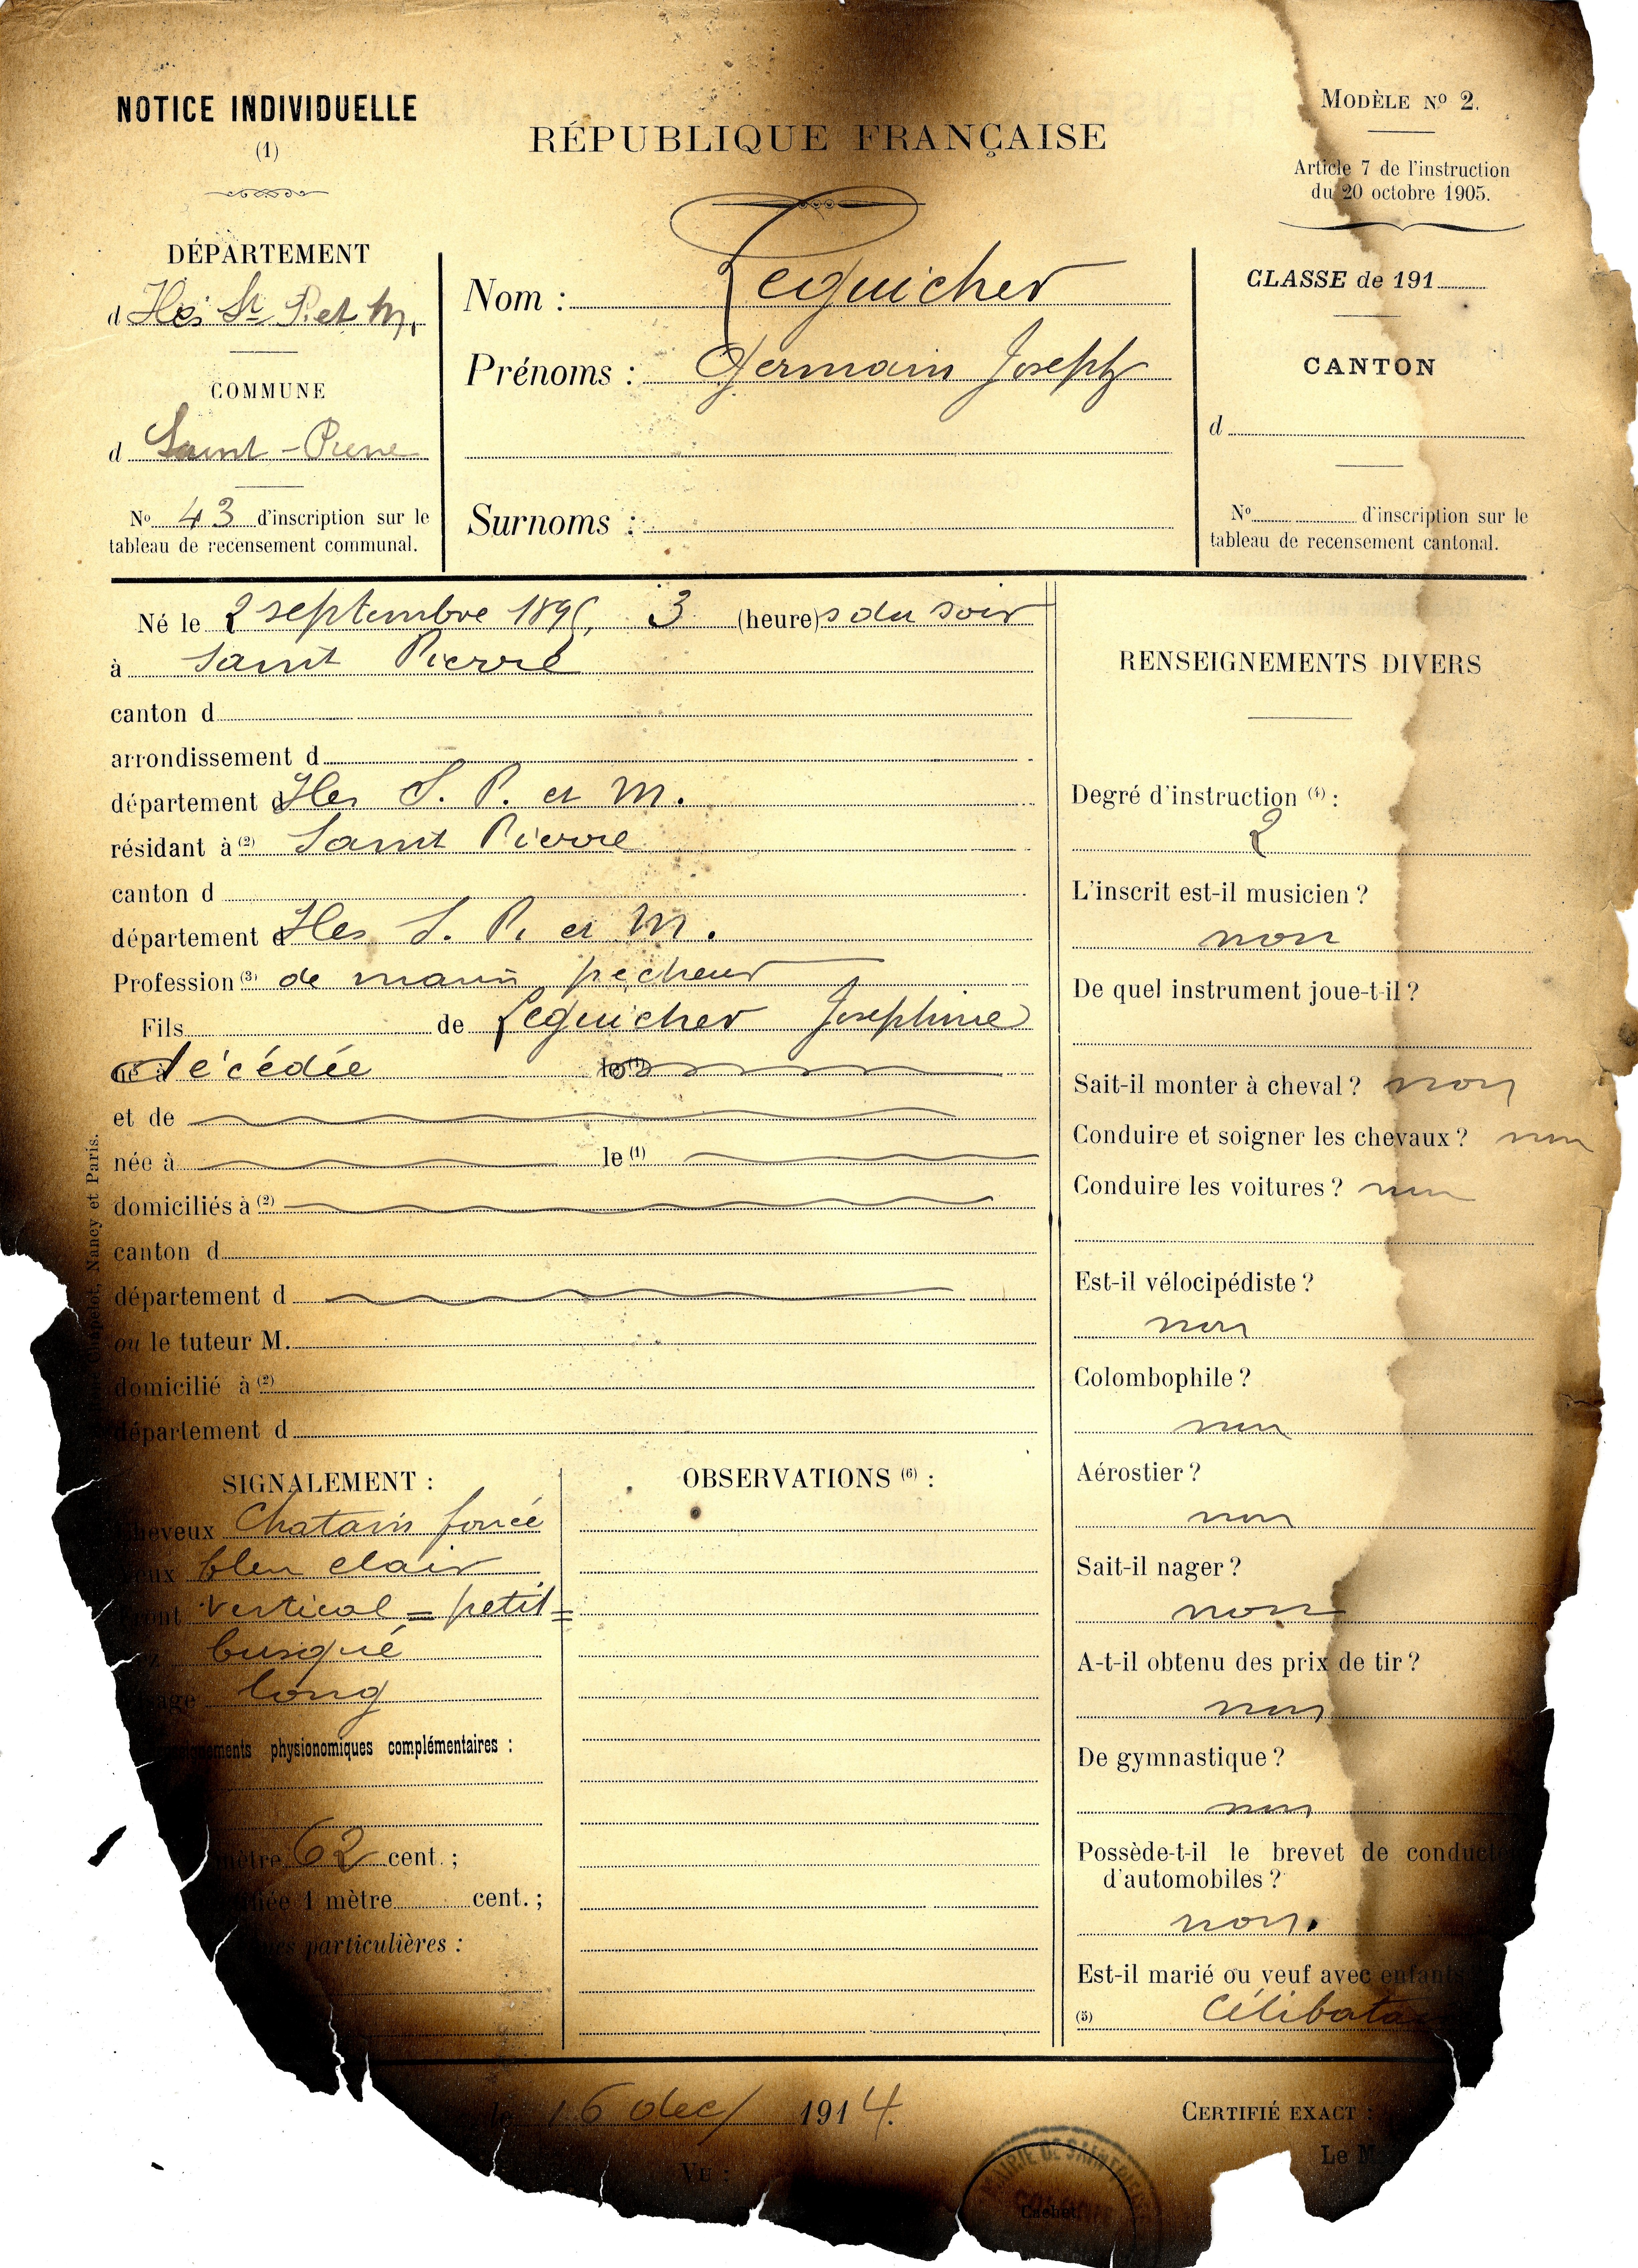 NOTICE INDIVIDUELLE
(1)
RÉPUBLIQUE FRANÇAISE
MODÈLE Nº 2.
Article 7 de l'instruction
du 20 octobre 1905.
DÉPARTEMENT
d Iles St P. et M.
COMMUNE
d Saint-Pierre
Nº 43 d'inscription sur le
tableau de recensement communal.
Nom : Lequicher
Prénoms : Germain Joseph
Surnoms :
CLASSE de 191
CANTON
d
Nº d'inscription sur le
tableau de recensement cantonal.
Né le 2 septembre 189 , 3 (heure)s du soir
à Saint Pierre
canton d
arrondissement d
département d Iles S. P. et M.
résidant à (2) Saint Pierre
canton d
département d Iles S. P. et M.
Profession (3) de marin pecheur
Fils de Lequicher Josephine
né à décédée le (1)
et de
née à le (1)
domiciliés à (2)
canton d
département d
ou le tuteur M.
domicilié à (2)
département d
Nancy et Paris.
SIGNALEMENT :
Cheveux Chatain foncé
Yeux bleu clair
Front vertical = petit =
busqué
Visage long
physionomiques complémentaires :
mètre 62 cent. ;
1 mètre cent. ;
particulières :
OBSERVATIONS (6) :
RENSEIGNEMENTS DIVERS
Degré d'instruction (4) :
2
L'inscrit est-il musicien ?
non
De quel instrument joue-t-il ?
Sait-il monter à cheval ? non
Conduire et soigner les chevaux ? non
Conduire les voitures ? non
Est-il vélocipédiste ?
non
Colombophile ?
non
Aérostier ?
non
Sait-il nager ?
non
A-t-il obtenu des prix de tir ?
non
De gymnastique ?
non
Possède-t-il le brevet de conduct
d'automobiles ?
non.
Est-il marié ou veuf avec enfants
(5) Célibata
le 16 dec/ 1914.
CERTIFIÉ EXACT :
Le M
VU :
MAIRIE DE SAINT PIERRE
Cachet